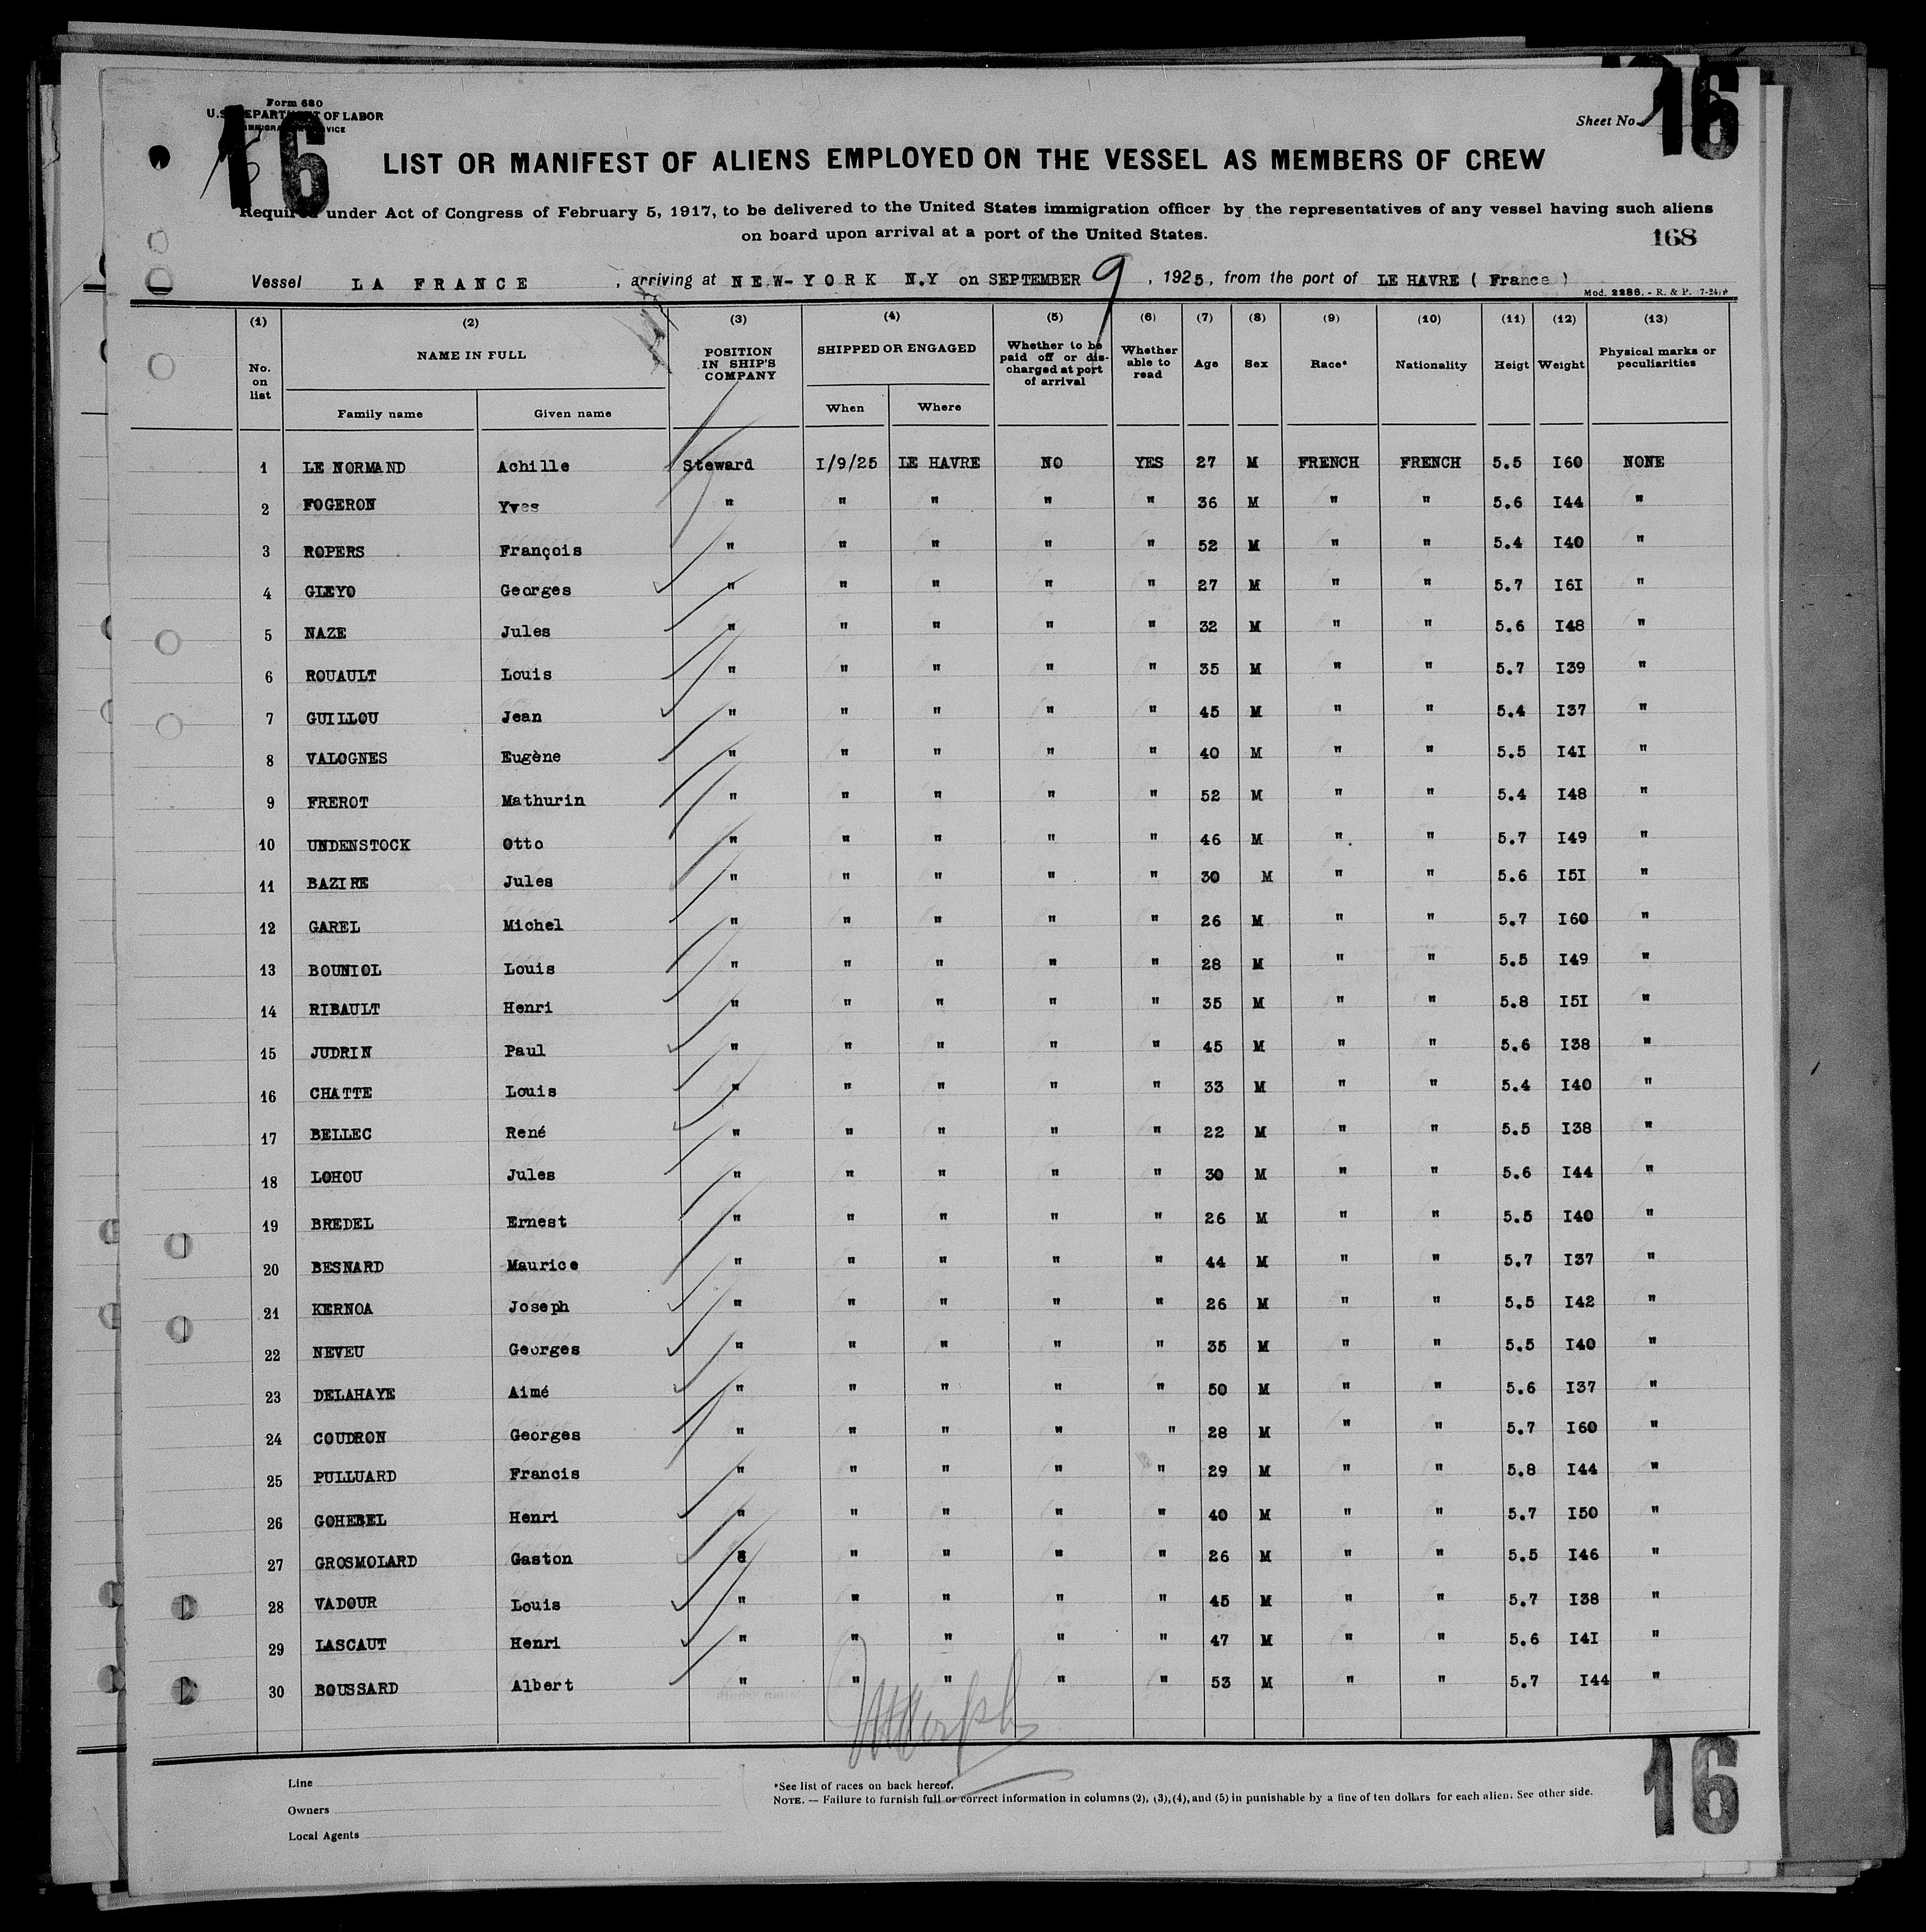 Form 680
U.S. DEPARTMENT OF LABOR
16
Sheet No. 16
LIST OR MANIFEST OF ALIENS EMPLOYED ON THE VESSEL AS MEMBERS OF CREW
Required under Act of Congress of February 5, 1917, to be delivered to the United States immigration officer by the representatives of any vessel having such aliens
on board upon arrival at a port of the United States.
168
Vessel LA FRANCE , arriving at NEW-YORK N.Y on SEPTEMBER 9 , 1925, from the port of LE HAVRE ( France )
Mod. 2286. - R. & P. (7-24)
(1) (2) (3) (4) (5) (6) (7) (8) (9) (10) (11) (12) (13)
No. on list NAME IN FULL POSITION IN SHIP'S COMPANY SHIPPED OR ENGAGED Whether to be paid off or discharged at port of arrival Whether able to read Age Sex Race* Nationality Heigt Weight Physical marks or peculiarities
Family name Given name When Where
1 LE NORMAND Achille Steward I/9/25 LE HAVRE NO YES 27 M FRENCH FRENCH 5.5 I60 NONE
2 FOGERON Yves " " " " " 36 M " " 5.6 I44 "
3 ROPERS François " " " " " 52 M " " 5.4 I40 "
4 GLEYO Georges " " " " " 27 M " " 5.7 I6I "
5 NAZE Jules " " " " " 32 M " " 5.6 I48 "
6 ROUAULT Louis " " " " " 35 M " " 5.7 I39 "
7 GUILLOU Jean " " " " " 45 M " " 5.4 I37 "
8 VALOGNES Eugène " " " " " 40 M " " 5.5 I4I "
9 FREROT Mathurin " " " " " 52 M " " 5.4 I48 "
10 UNDENSTOCK Otto " " " " " 46 M " " 5.7 I49 "
11 BAZIRE Jules " " " " " 30 M " " 5.6 I5I "
12 GAREL Michel " " " " " 26 M " " 5.7 I60 "
13 BOUNIOL Louis " " " " " 28 M " " 5.5 I49 "
14 RIBAULT Henri " " " " " 35 M " " 5.8 I5I "
15 JUDRIN Paul " " " " " 45 M " " 5.6 I38 "
16 CHATTE Louis " " " " " 33 M " " 5.4 I40 "
17 BELLEC René " " " " " 22 M " " 5.5 I38 "
18 LOHOU Jules " " " " " 30 M " " 5.6 I44 "
19 BREDEL Ernest " " " " " 26 M " " 5.5 I40 "
20 BESNARD Maurice " " " " " 44 M " " 5.7 I37 "
21 KERNOA Joseph " " " " " 26 M " " 5.5 I42 "
22 NEVEU Georges " " " " " 35 M " " 5.5 I40 "
23 DELAHAYE Aimé " " " " " 50 M " " 5.6 I37 "
24 COUDRON Georges " " " " " 28 M " " 5.7 I60 "
25 PULLUARD Francis " " " " " 29 M " " 5.8 I44 "
26 GOHEBEL Henri " " " " " 40 M " " 5.7 I50 "
27 GROSMOLARD Gaston " " " " " 26 M " " 5.5 I46 "
28 VADOUR Louis " " " " " 45 M " " 5.7 I38 "
29 LASCAUT Henri " " " " " 47 M " " 5.6 I4I "
30 BOUSSARD Albert " " " " " 53 M " " 5.7 I44 "
Line
Owners
Local Agents
*See list of races on back hereof.
NOTE. — Failure to furnish full or correct information in columns (2), (3), (4), and (5) in punishable by a fine of ten dollars for each alien. See other side.
16